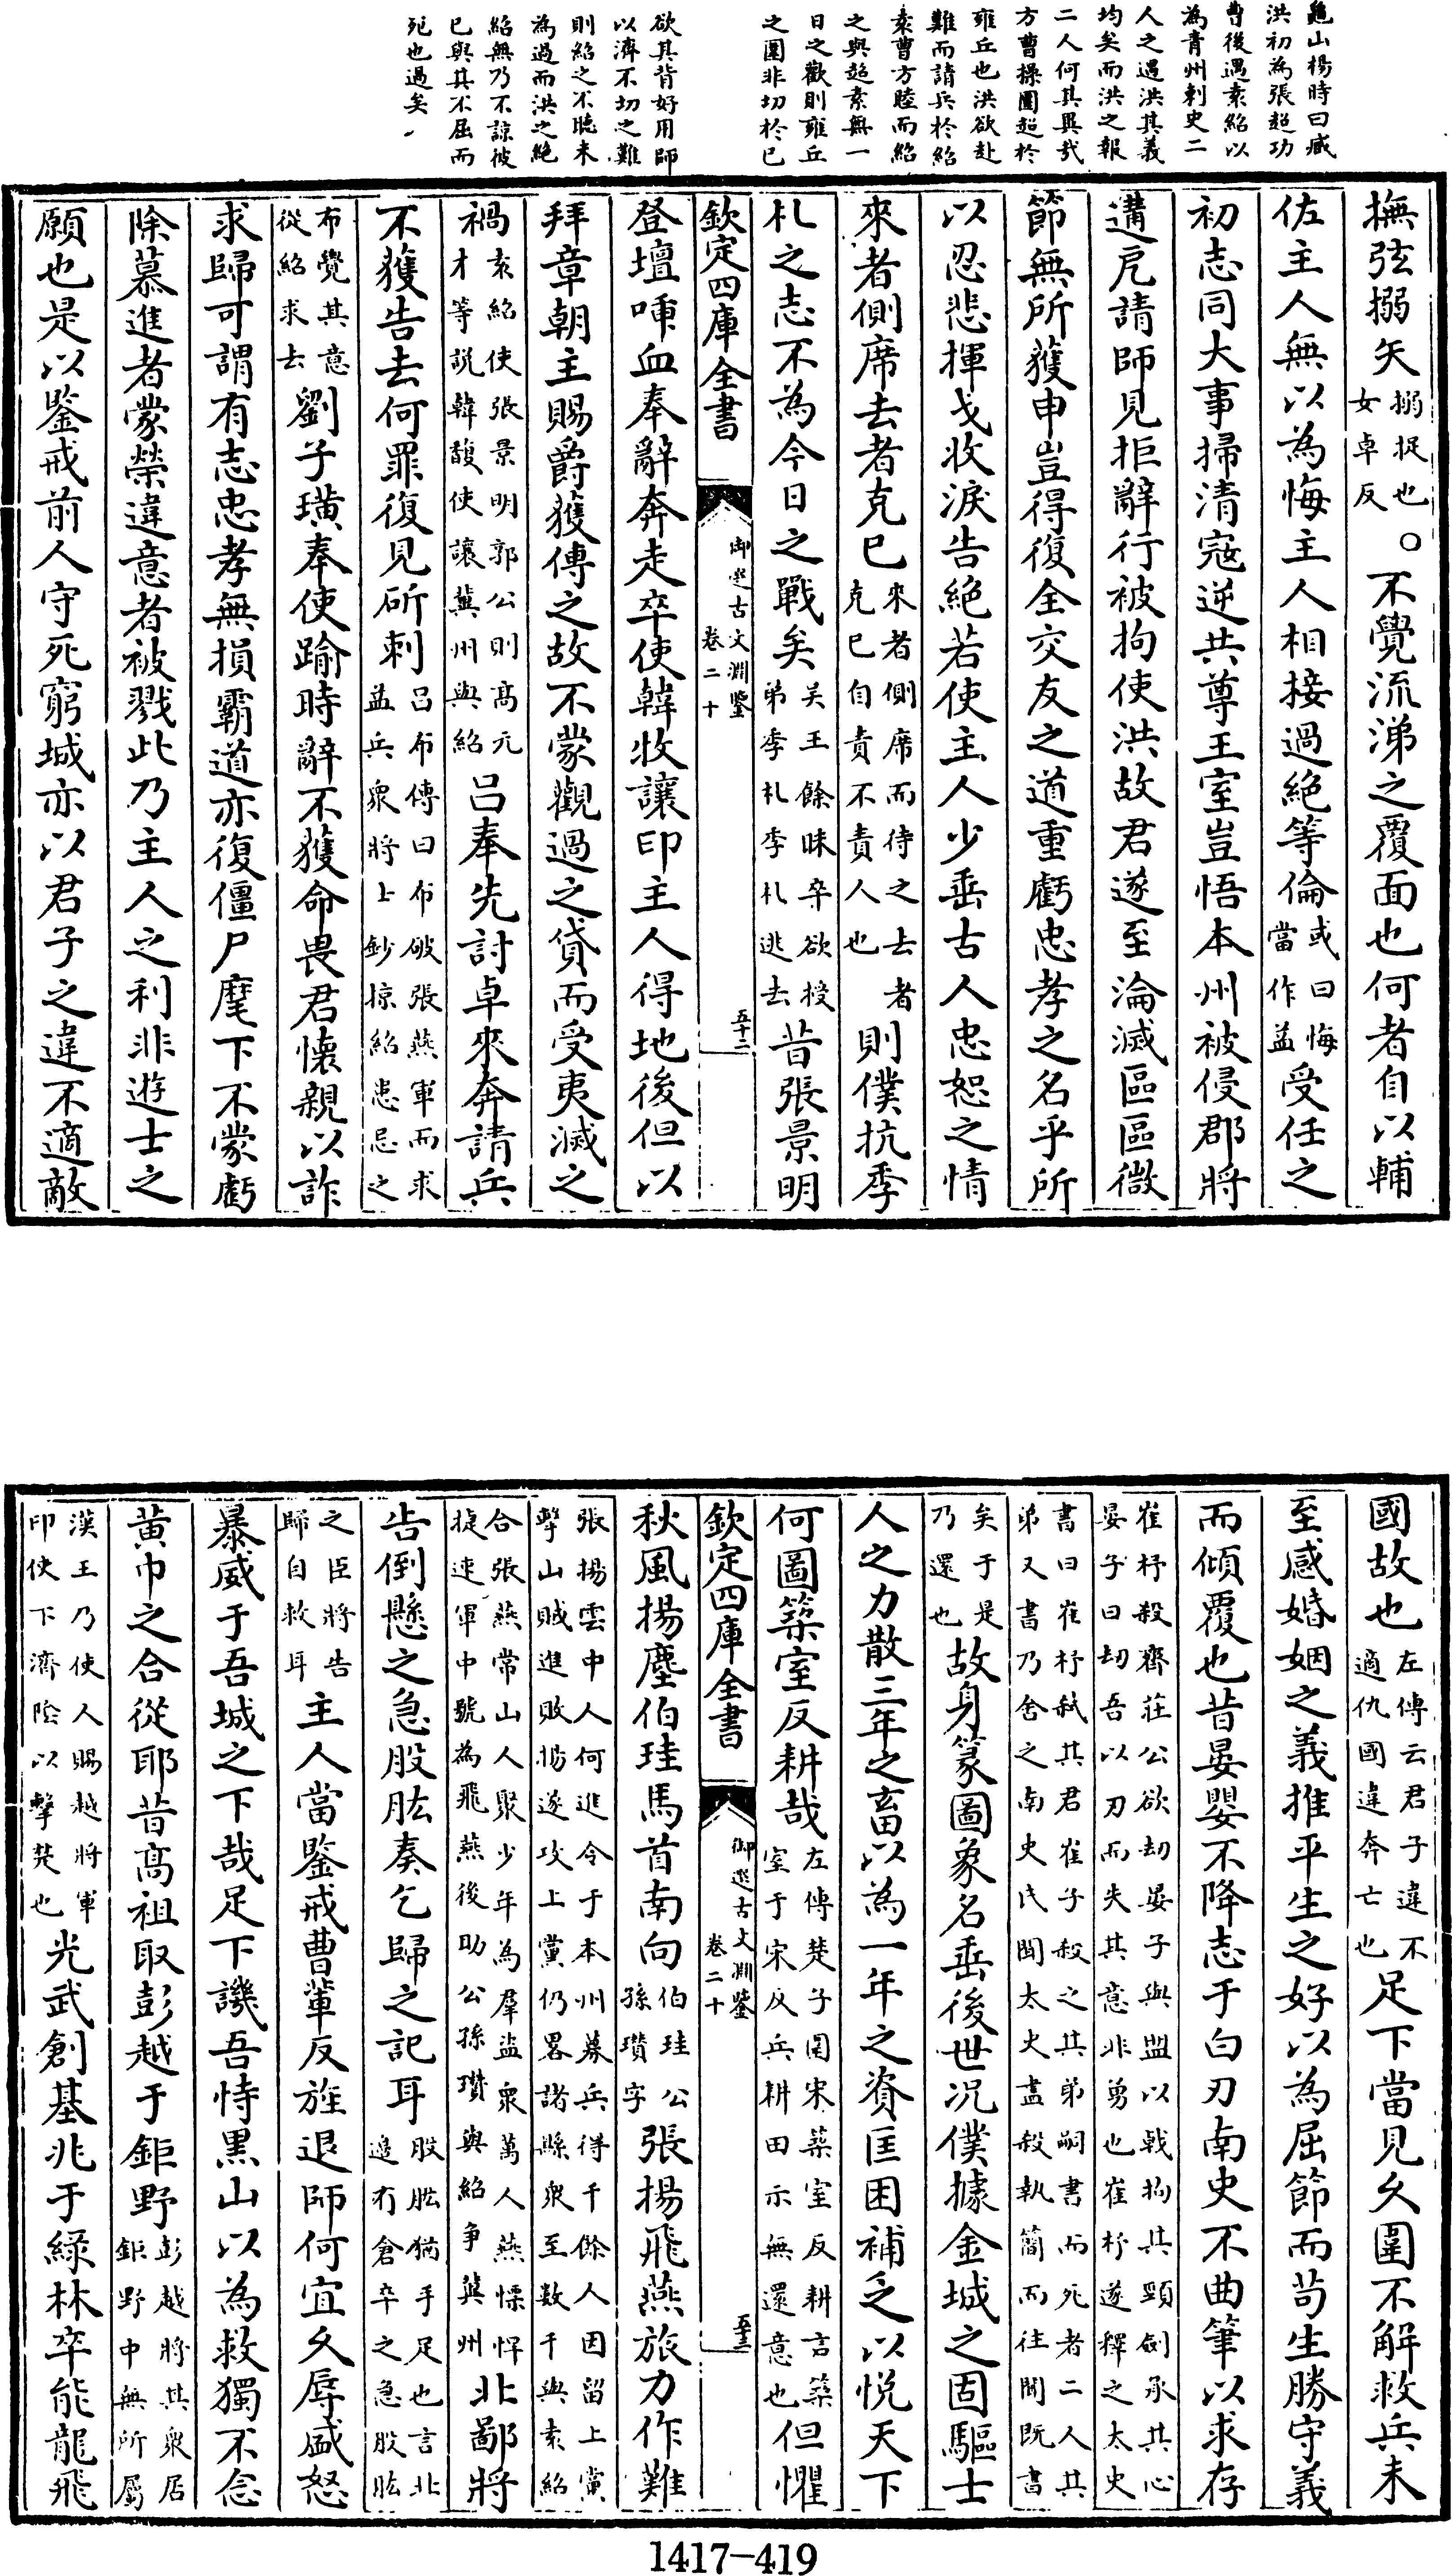 龜山楊時曰臧
洪初為張超功
曹後遇袁紹以
為青州刺史二
人之遇洪其義
均矣而洪之報
二人何其異哉
方曹操圍超於
雍丘也洪欲赴
難而請兵於紹
袁曹方睦而紹
之與超素無一
日之歡則雍丘
之圍非切於已
欲其背好用師
以濟不切之難
則紹之不聽未
為過而洪之絶
紹無乃不諒彼
已與其不屈而
死也過矣
撫弦搦矢搦捉也女卓反○不覺流涕之覆面也何者自以輔
佐主人無以為悔主人相接過絶等倫或曰悔當作益受任之
初志同大事掃清寇逆共尊王室豈悟本州被侵郡將
遘戹請師見拒辭行被拘使洪故君遂至淪滅區區微
節無所獲申豈得復全交友之道重虧忠孝之名乎所
以忍悲揮戈收淚告絶若使主人少垂古人忠恕之情
來者側席去者克已來者側席而待之去者克已自責不責人也則僕抗季
札之志不為今日之戰矣吴王餘昧卒欲授弟季札季札逃去昔張景明
欽定四庫全書
御選古文淵鑒
卷二十
五十二
登壇喢血奉辭奔走卒使韓牧讓印主人得地後但以
拜章朝主賜爵獲傳之故不蒙觀過之貸而受夷滅之
禍袁紹使張景明郭公則高元才等説韓馥使讓冀州與紹吕奉先討卓來奔請兵
不獲告去何罪復見斫刺吕布傳曰布破張燕軍而求益兵衆將士鈔掠紹患忌之
布覺其意從紹求去劉子璜奉使踰時辭不獲命畏君懷親以詐
求歸可謂有志忠孝無損霸道亦復僵尸麾下不蒙虧
除慕進者蒙榮違意者被戮此乃主人之利非遊士之
願也是以鑒戒前人守死窮城亦以君子之違不適敵
國故也左傳云君子違不適仇國違奔亡也足下當見久圍不解救兵未
至感婚姻之義推平生之好以為屈節而苟生勝守義
而傾覆也昔晏嬰不降志于白刃南史不曲筆以求存
崔杼殺齊莊公欲劫晏子與盟以戟拘其頸劍承其心晏子曰劫吾以刃而失其意非勇也崔杼遂釋之太史
書曰崔杼弑其君崔子殺之其弟嗣書而死者二人其弟又書乃舍之南史氏聞太史盡殺執簡而往聞既書
矣于是乃還也故身篆圖象名垂後世况僕據金城之固驅士
人之力散三年之畜以為一年之資匡困補乏以悦天下
何圖築室反耕哉左傳楚子圍宋築室反耕言築室于宋反兵耕田示無還意也但懼
欽定四庫全書
御選古文淵鑒
卷二十
五十三
秋風揚塵伯珪馬首南向伯珪公孫瓚字張揚飛燕旅力作難
張揚雲中人何進令于本州募兵得千餘人因留上黨擊山賊進敗揚遂攻上黨仍畧諸縣衆至數千與袁紹
合張燕常山人聚少年為羣盜衆萬人燕慓悍捷速軍中號為飛燕後助公孫瓚與紹爭冀州北鄙將
告倒懸之急股肱奏乞歸之記耳股肱猶手足也言北邊有倉卒之急股肱
之臣將告歸自救耳主人當鑒戒曹輩反旌退師何宜久辱盛怒
暴威于吾城之下哉足下譏吾恃黑山以為救獨不念
黃巾之合從耶昔高祖取彭越于鉅野彭越將其衆居鉅野中無所屬
漢王乃使人賜越將軍印使下濟陰以擊楚也光武創基兆于緑林卒能龍飛
1417-419